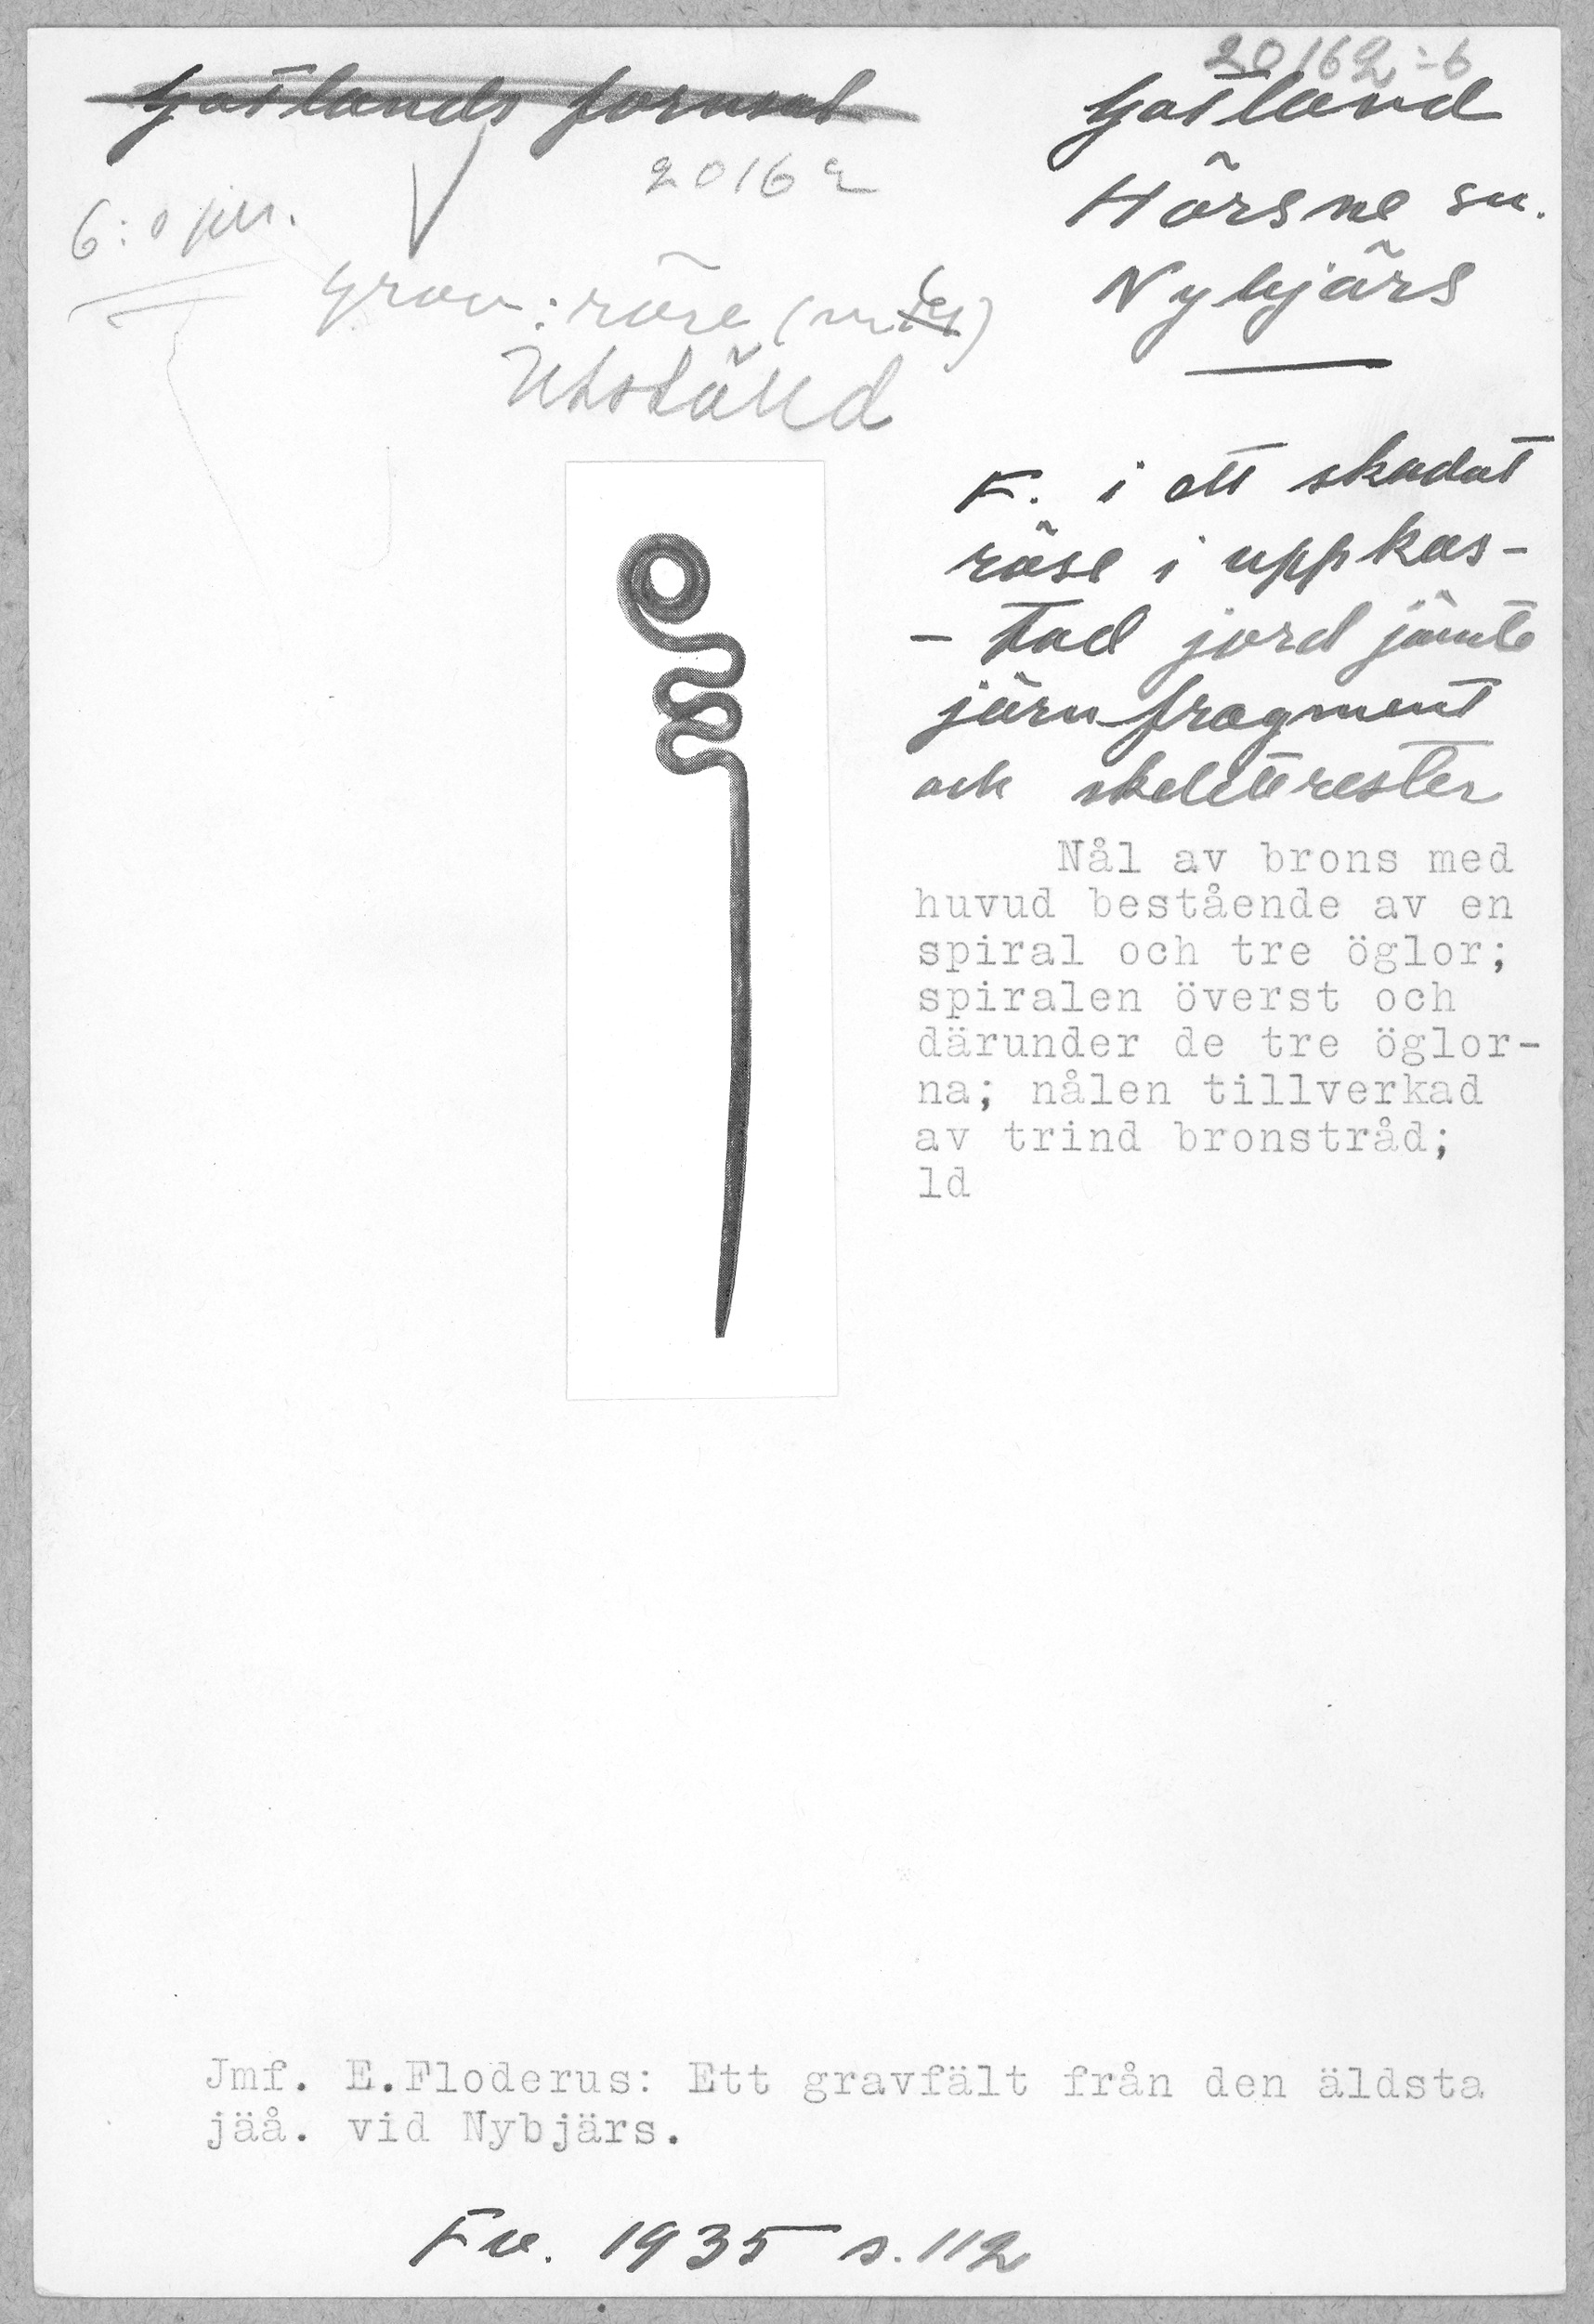 20162:6
Gotlands fornsal
Gotland
20162
Hörsne sn.
6: e per.
Nybjärs
grav: röse (nr 6)
Utställd
F. i ett skadat
röse i uppkas-
- tad jord jämte
järnfragment
och skelettrester
Nål av brons med
huvud bestående av en
spiral och tre öglor;
spiralen överst och
därunder de tre öglor-
na; nålen tillverkad
av trind bronstråd;
ld
Jmf. E.Floderus: Ett gravfält från den äldsta
jäå. vid Nybjärs.
Fv. 1935 s. 112